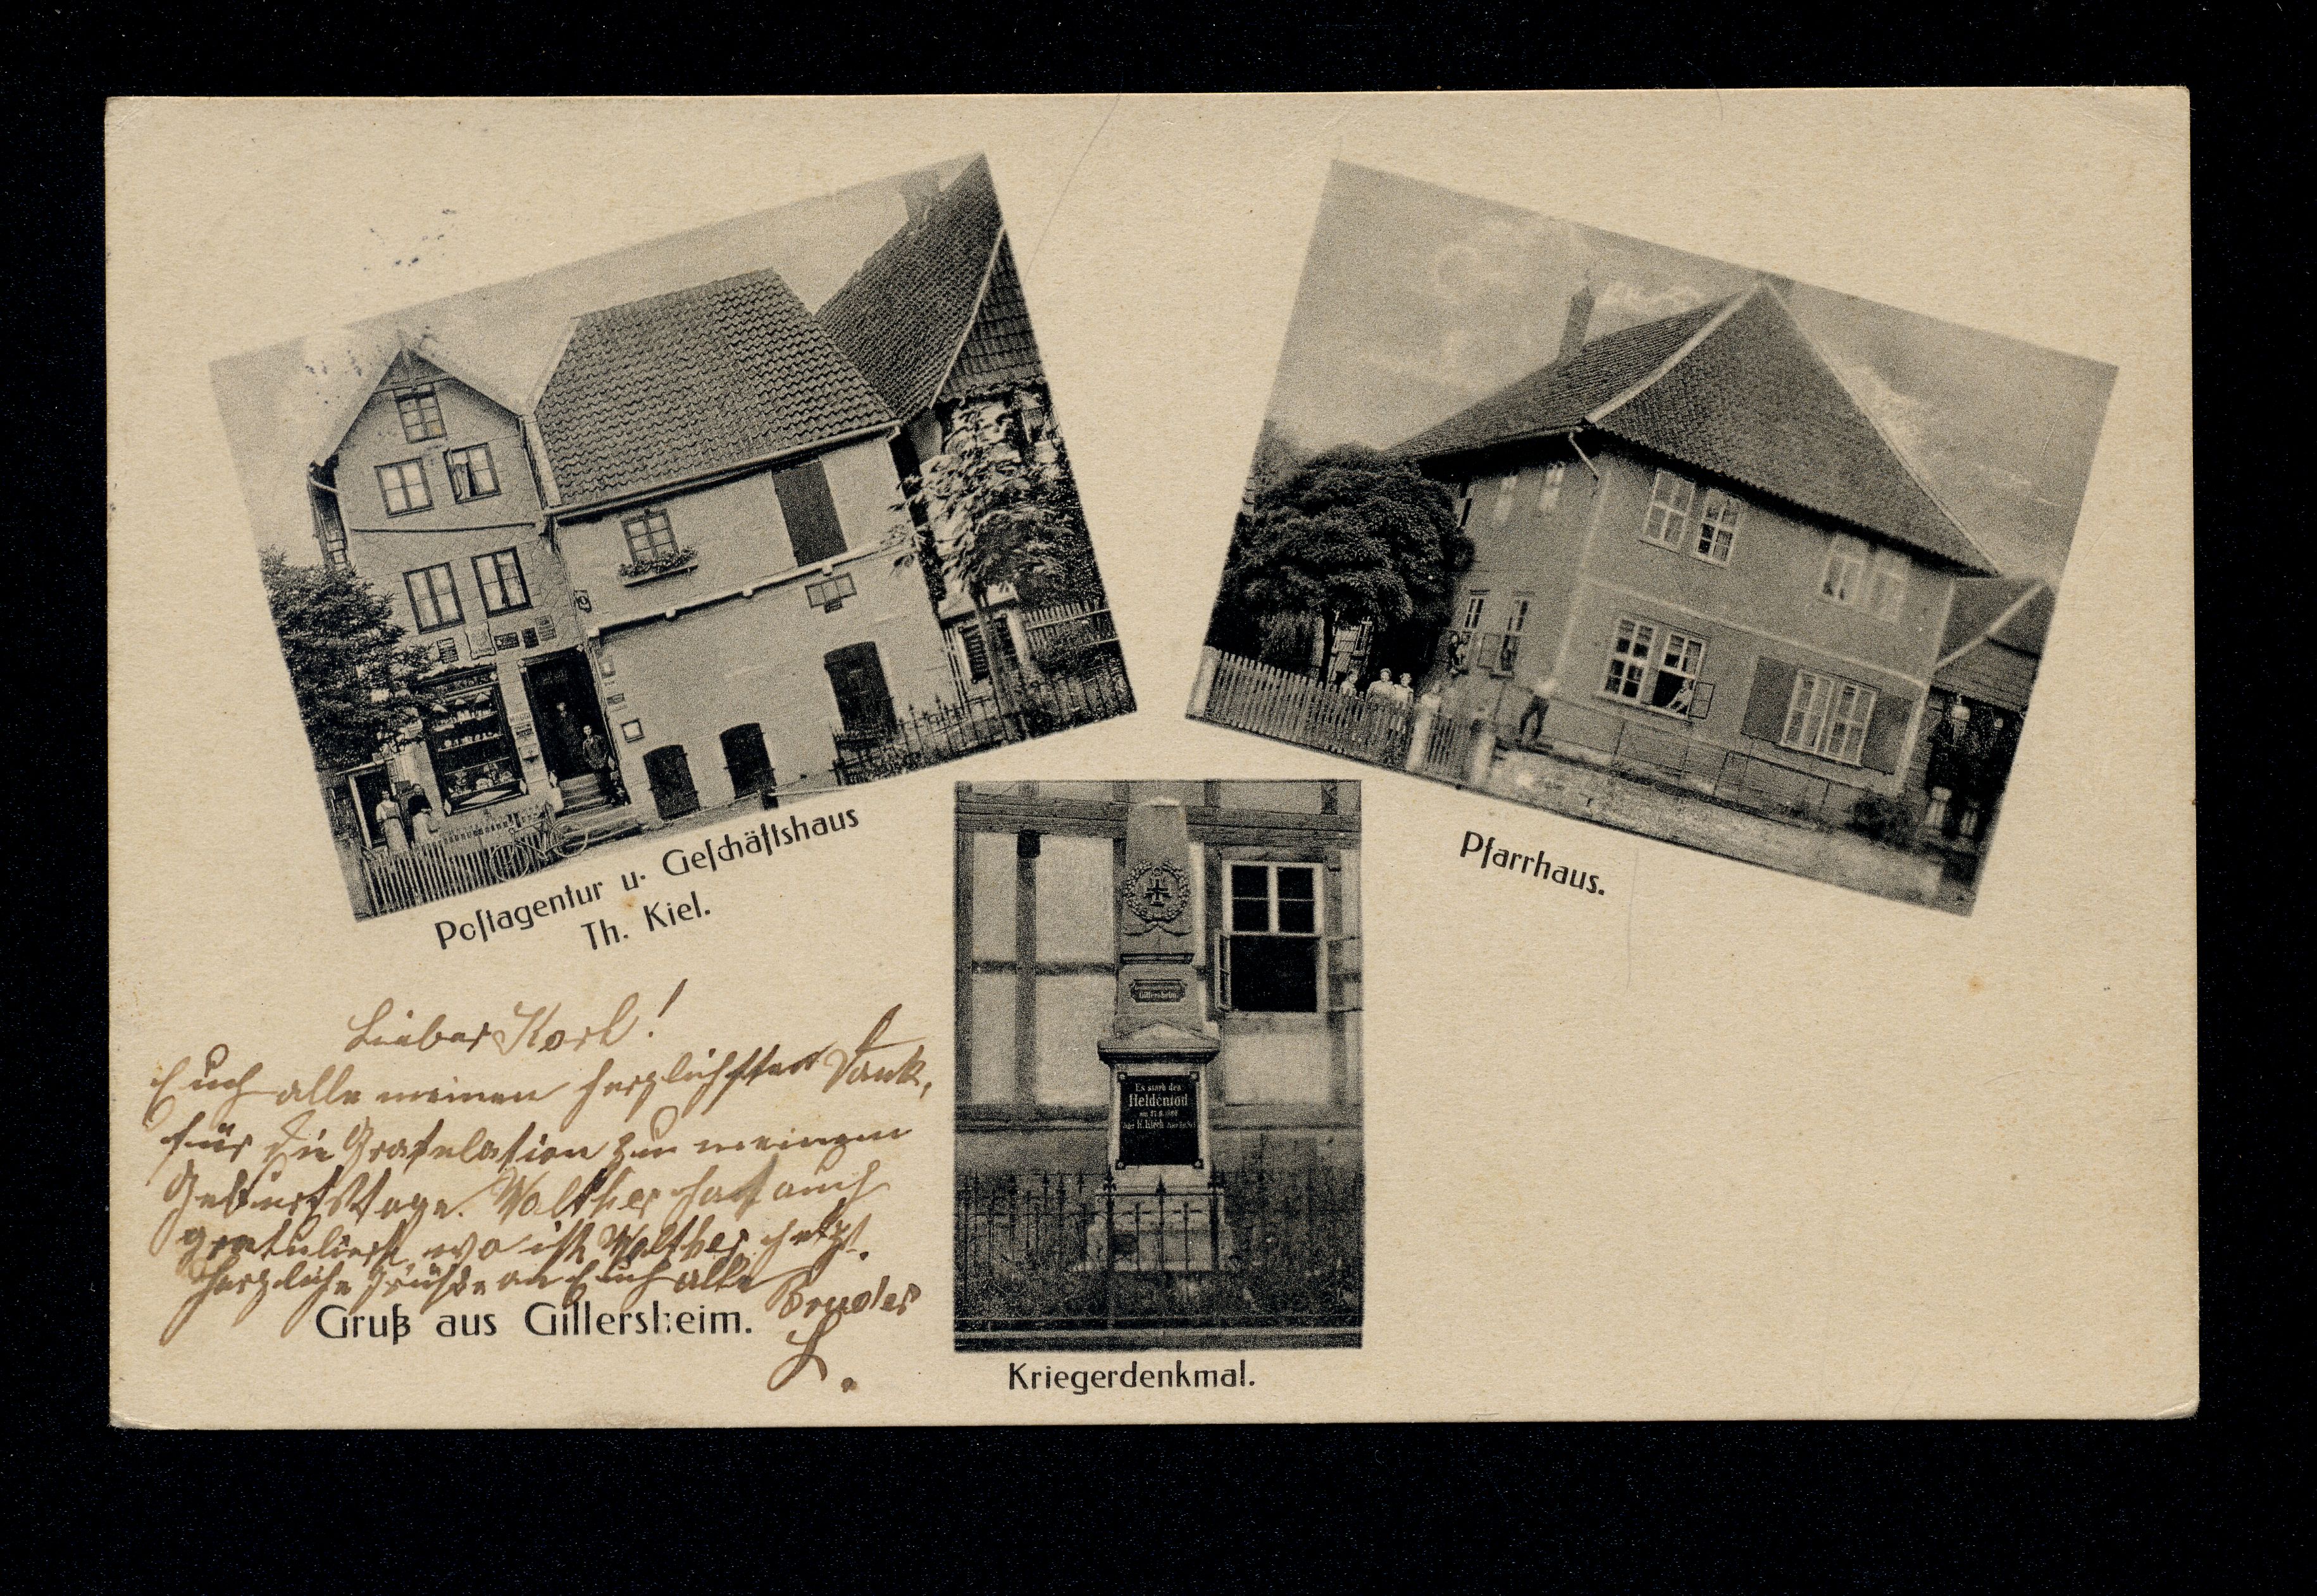 Postagentur u. Geschäftshaus
Th. Kiel.
Pfarrhaus.
Gillersheim
Es starb den
Heldentod
Lieber Karl!
Euch alle meinen herzlichsten Dank,
für die Gratulation zu meinem
Geburtstage. Walther hat auch
gratuliert, wo ist Walther jetzt.
Herzliche Grüße an Euch alle
Bruder
L.
Gruß aus Gillersheim.
Kriegerdenkmal.